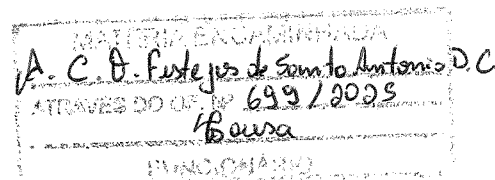 MATÉRIA ENCAMINHADA
A. C. O. Festejos de Santo Antonio D.C
ATRAVÉS DO OF. Nº 699/2025
Sousa
FUNCIONÁRIO